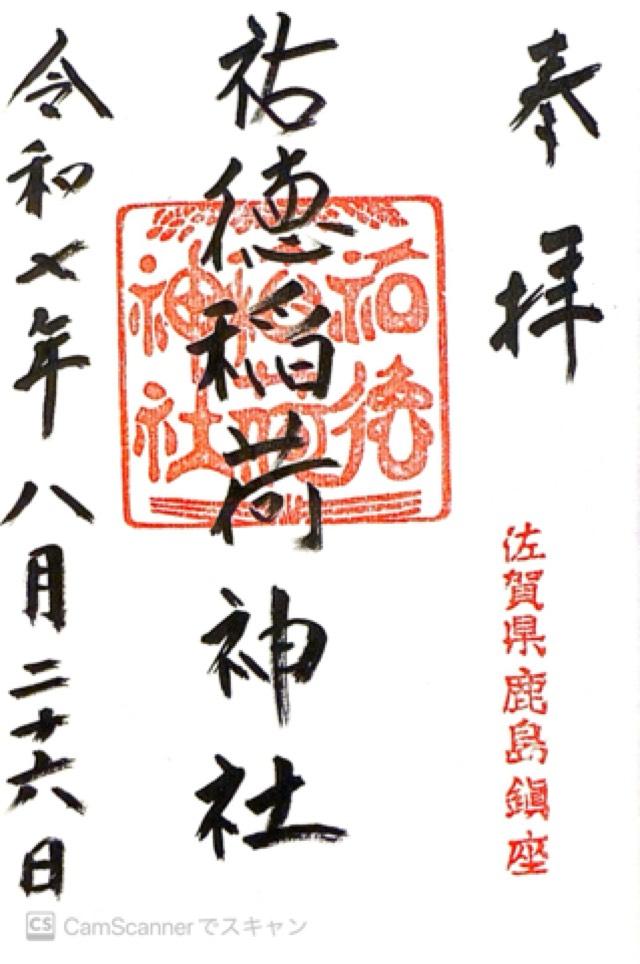 奉拝
佐賀県鹿島鎮座
祐徳稲荷神社
祐徳
稲荷
神社
令和七年八月二十六日
CS CamScannerでスキャン